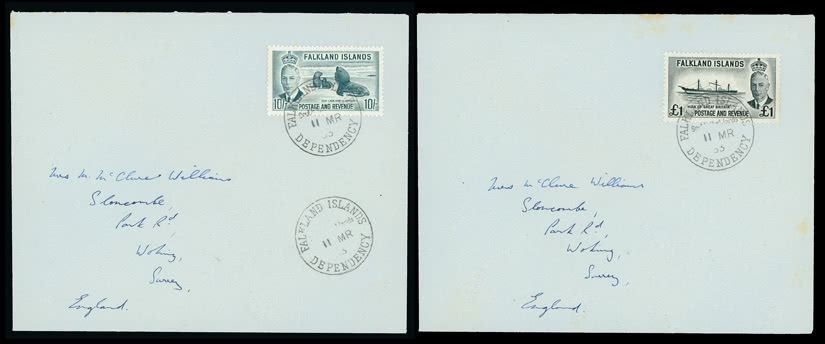 FALKLAND ISLANDS
10/- 10/-
POSTAGE AND REVENUE
FALKLAND ISLANDS
11 MR
53
DEPENDENCY
Mrs M. McClure Williams
Sloncombe,
Park Rd,
Woking,
Surrey,
England.
FALKLAND ISLANDS
11 MR
DEPENDENCY
FALKLAND ISLANDS
£1 £1
POSTAGE AND REVENUE
FALKLAND ISLANDS
11 MR
53
DEPENDENCY
Mrs M. McClure Williams
Sloncombe,
Park Rd,
Woking,
Surrey,
England.